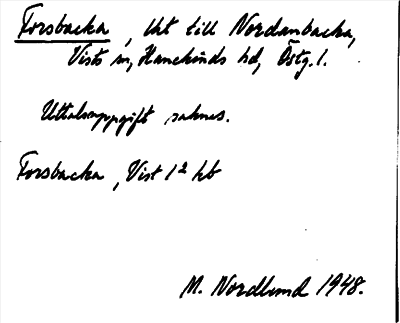 Forsbacka, lht till Nordanbacka,
Vists sn, Hanekinds hd, Östg. l.
Uttalsuppgift saknas.
Forsbacka, Vist 12 hb
M. Nordlund 1948.